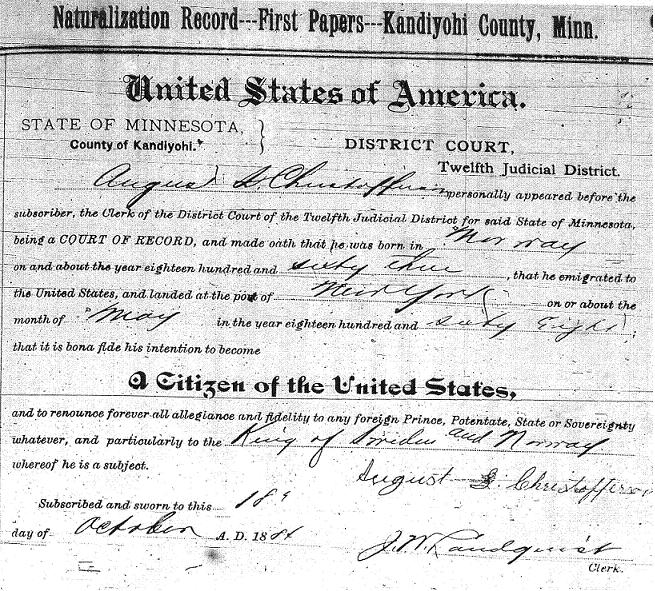 Naturalization Record---First Papers---Kandiyohi County, Minn.
United States of America.
STATE OF MINNESOTA, }
County of Kandiyohi.
DISTRICT COURT,
Twelfth Judicial District.
August Christofferson personally appeared before the
subscriber, the Clerk of the District Court of the Twelfth Judicial District for said State of Minnesota,
being a COURT OF RECORD, and made oath that he was born in Norway
on and about the year eighteen hundred and sixty three, that he emigrated to
the United States, and landed at the port of New York on or about the
month of May in the year eighteen hundred and sixty Eight,
that it is bona fide his intention to become
A Citizen of the United States,
and to renounce forever all allegiance and fidelity to any foreign Prince, Potentate, State or Sovereignty
whatever, and particularly to the King of Sweden and Norway
whereof he is a subject.
August Christofferson
Subscribed and sworn to this
day of October A. D. 188
J. W. Landquist
Clerk.